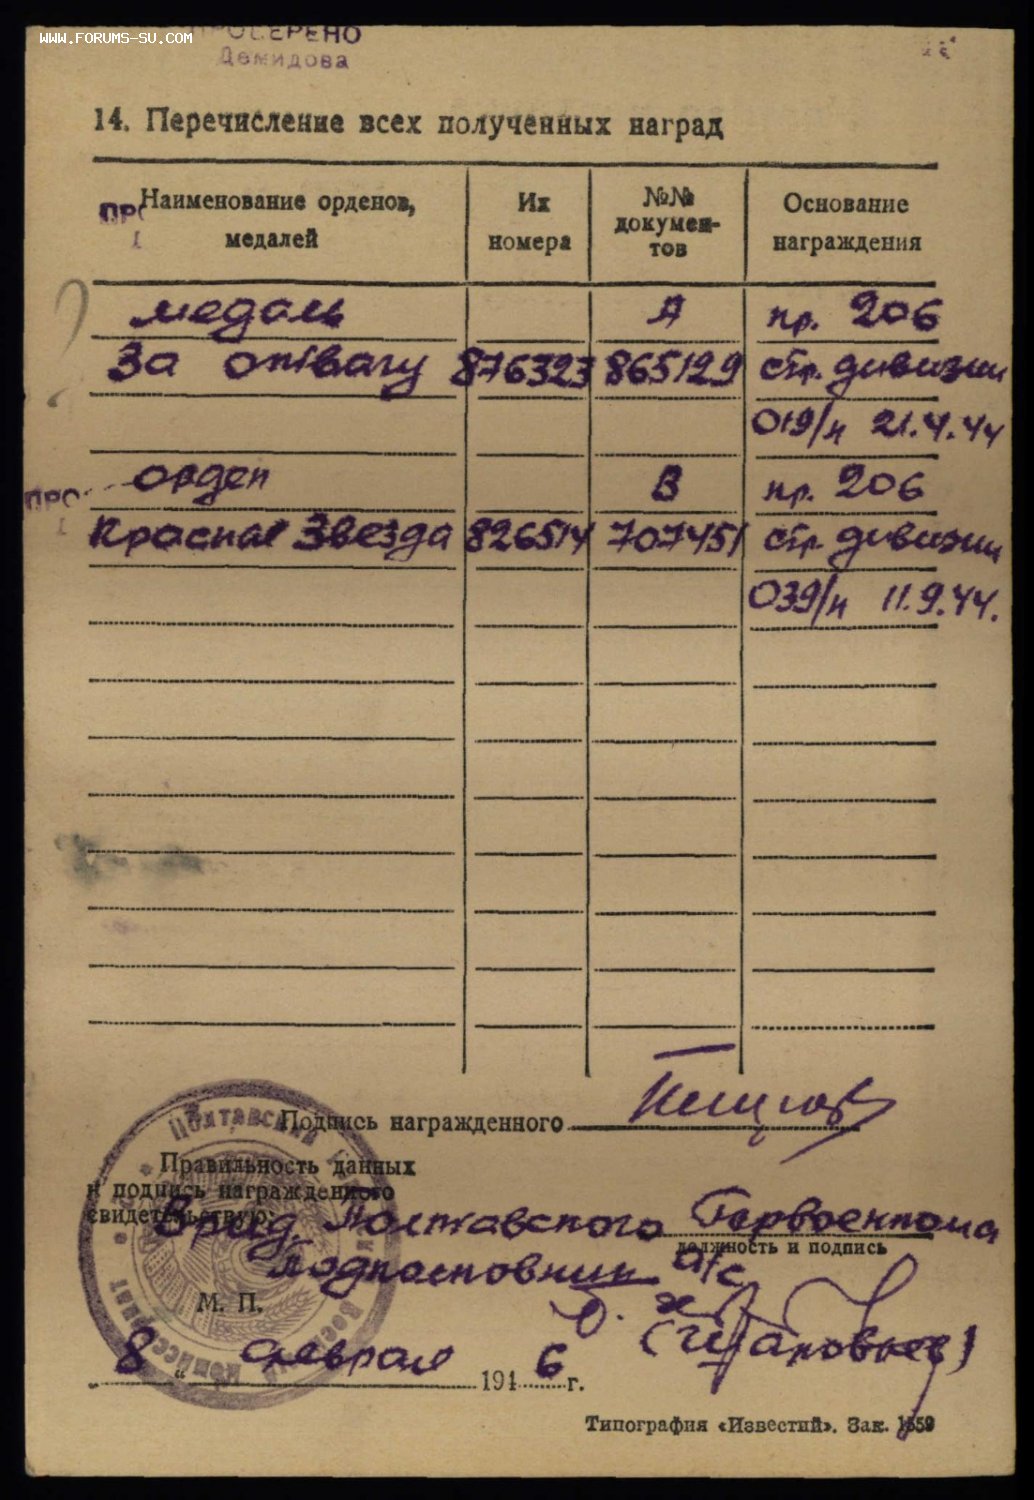 WWW.FORUMS-SU.COM
ПРОВЕРЕНО
Демидова
14. Перечисление всех полученных наград
Наименование орденов, медалей
Их номера
№№ документов
Основание награждения
медаль А пр. 206
За отвагу 876323 865129 стр. дивизии
019/н 21.4.44
орден В пр. 206
Красная Звезда 826514 707451 стр. дивизии
039/н 11.9.44.
Подпись награжденного
Правильность данных
и подпись награжденного
свидетельствую:
Врид. Полтавского Горвоенкома
должность и подпись
подполковник а/с
М. П.
8 " февраля 1946 г.
Типография «Известий». Зак. 1559